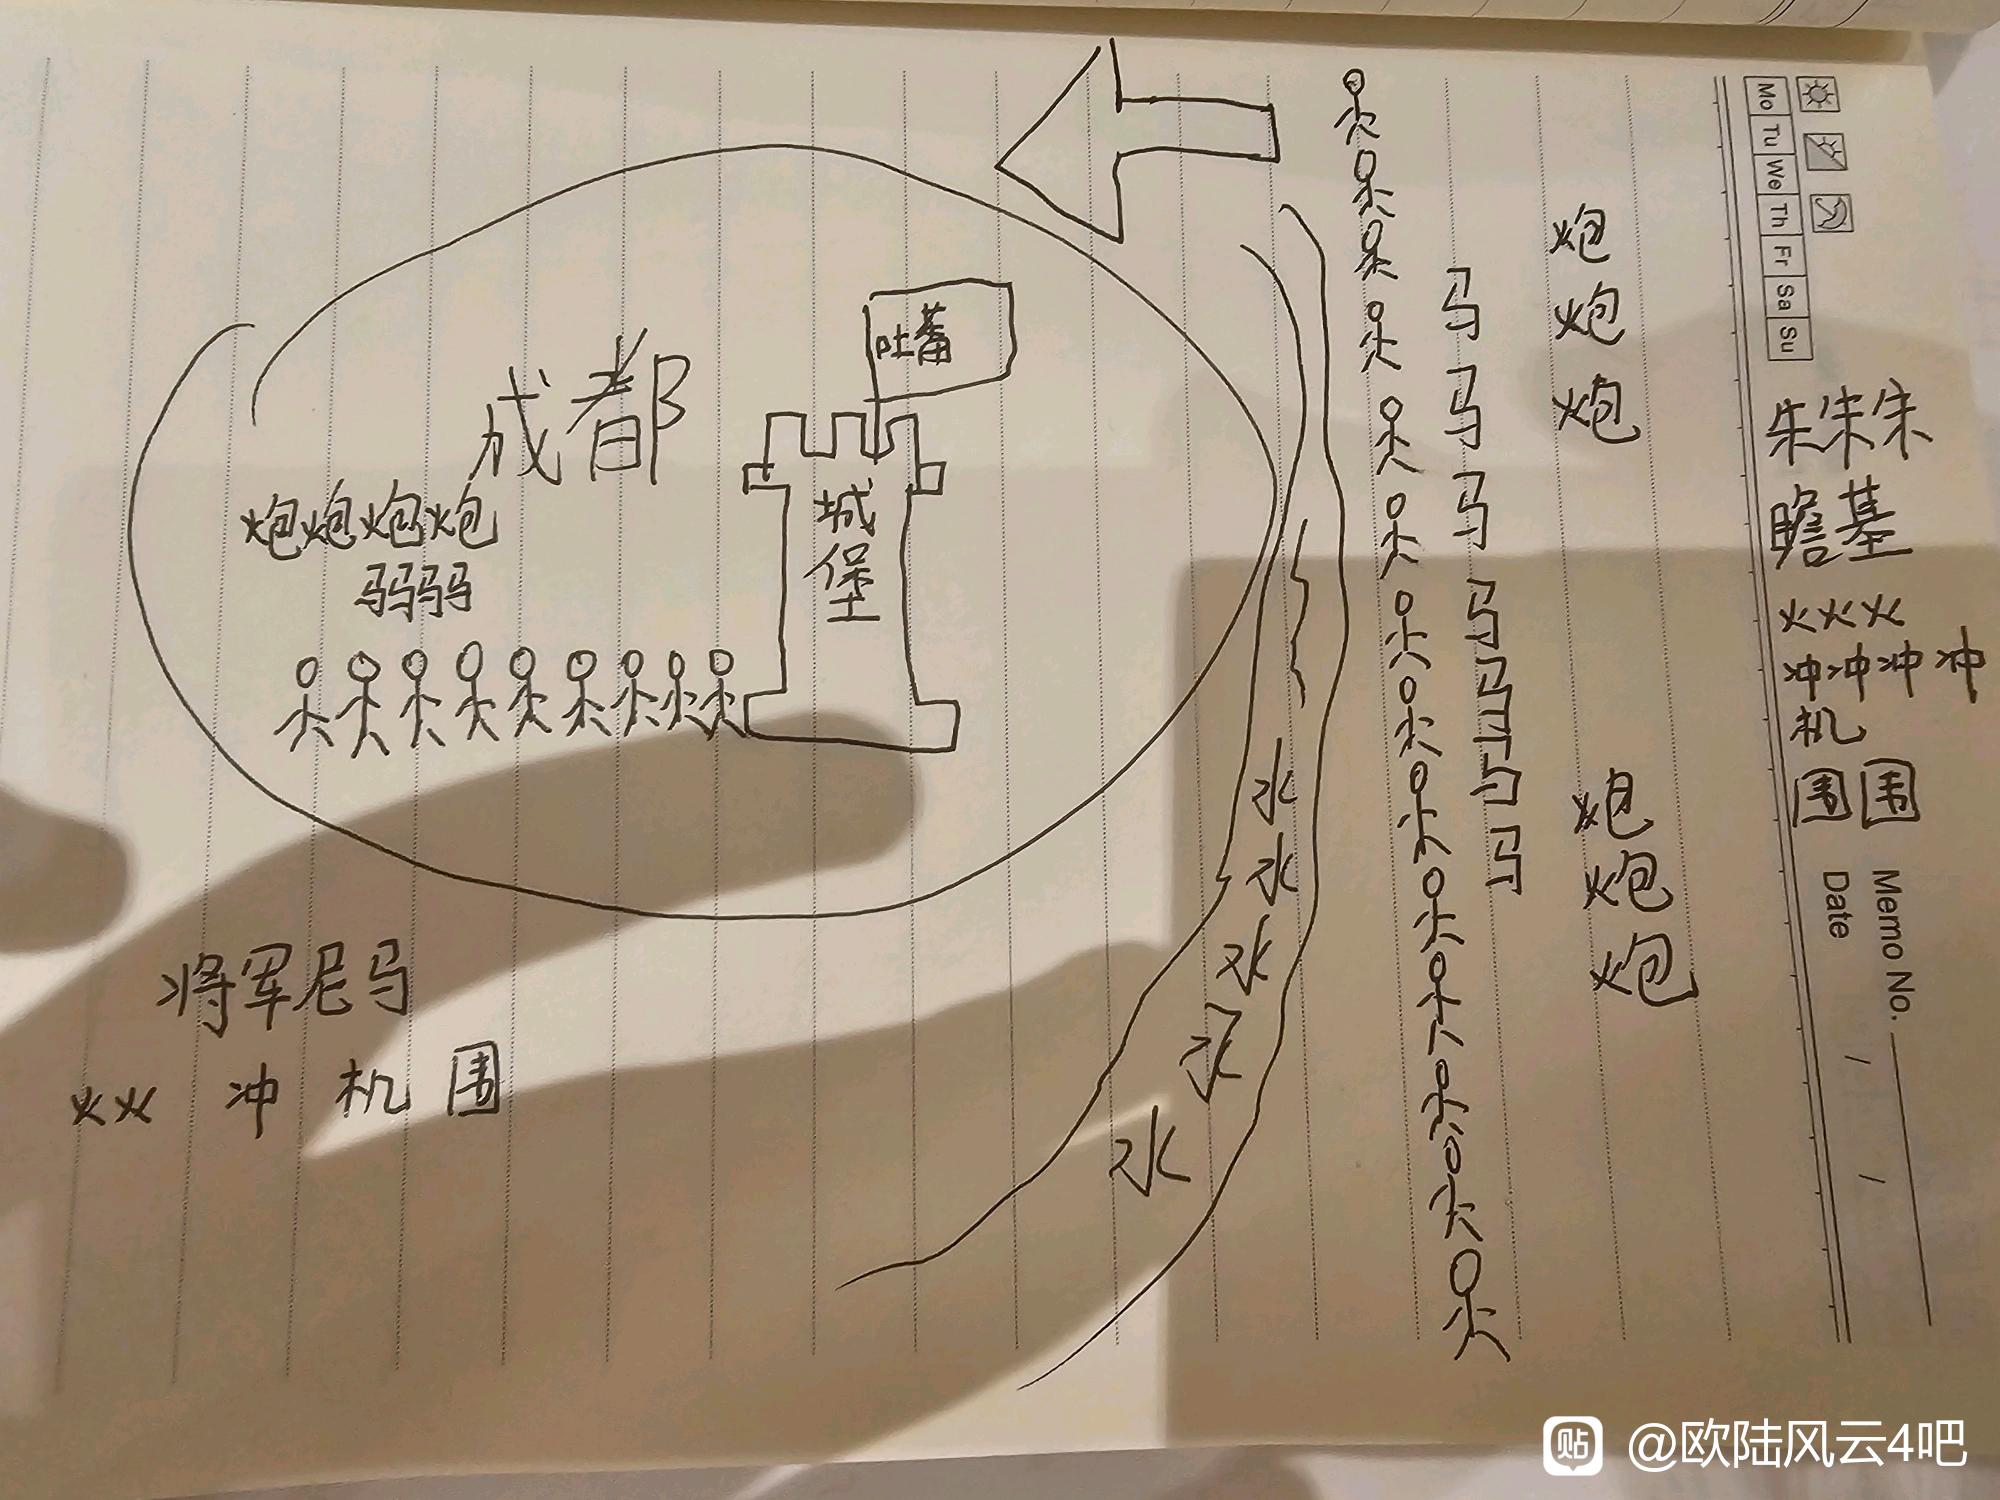 吐蕃
成都
城堡
炮炮炮炮
马马马马
将军尼马
火火 冲 机 围
水
水
水
水
水
马
马
马
马
马
马
马
马
炮
炮
炮
炮
炮
炮
朱朱朱
瞻基
火火火
冲冲冲冲
机
围围
Mo Tu We Th Fr Sa Su
Memo No.
Date / /
贴 @欧陆风云4吧